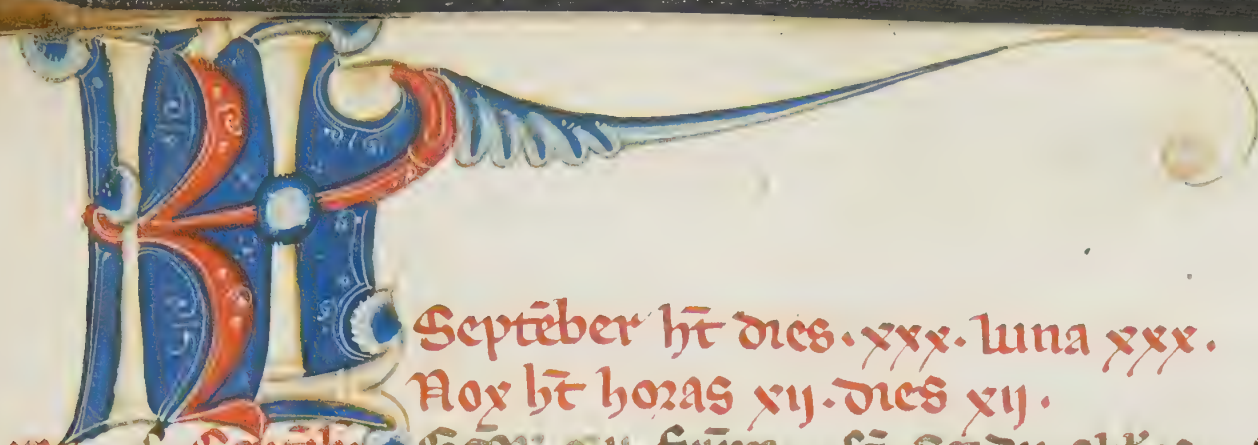 KL
Septēber ht̄ dies · xxx · luna xxx ·
Nox ht̄ horas xij · dies xij ·